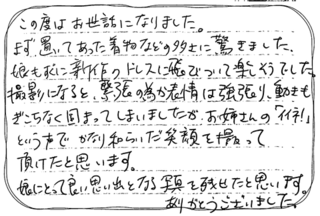 この度はお世話になりました。
まず置いてあった着物などの多さに驚きました。
娘も次に新作のドレスに飛びついて楽しそうでした。
撮影になると、緊張の為か表情は強張り、動きも
ぎこちなく固まってしまいましたが、お姉さんの「イイネ!」
という声でかなり和らいだ笑顔を撮って
頂けたと思います。
娘にとって良い思い出となる写真を残せたと思います。
ありがとうございました。